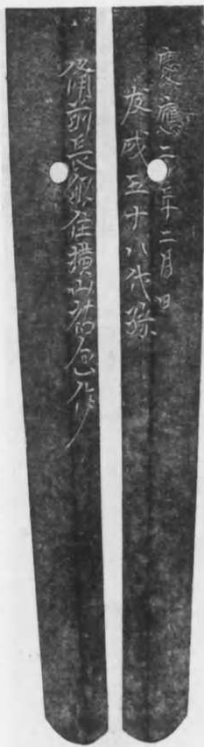 慶應二年二月日
友成五十八代孫
備前長船住横山祐包作